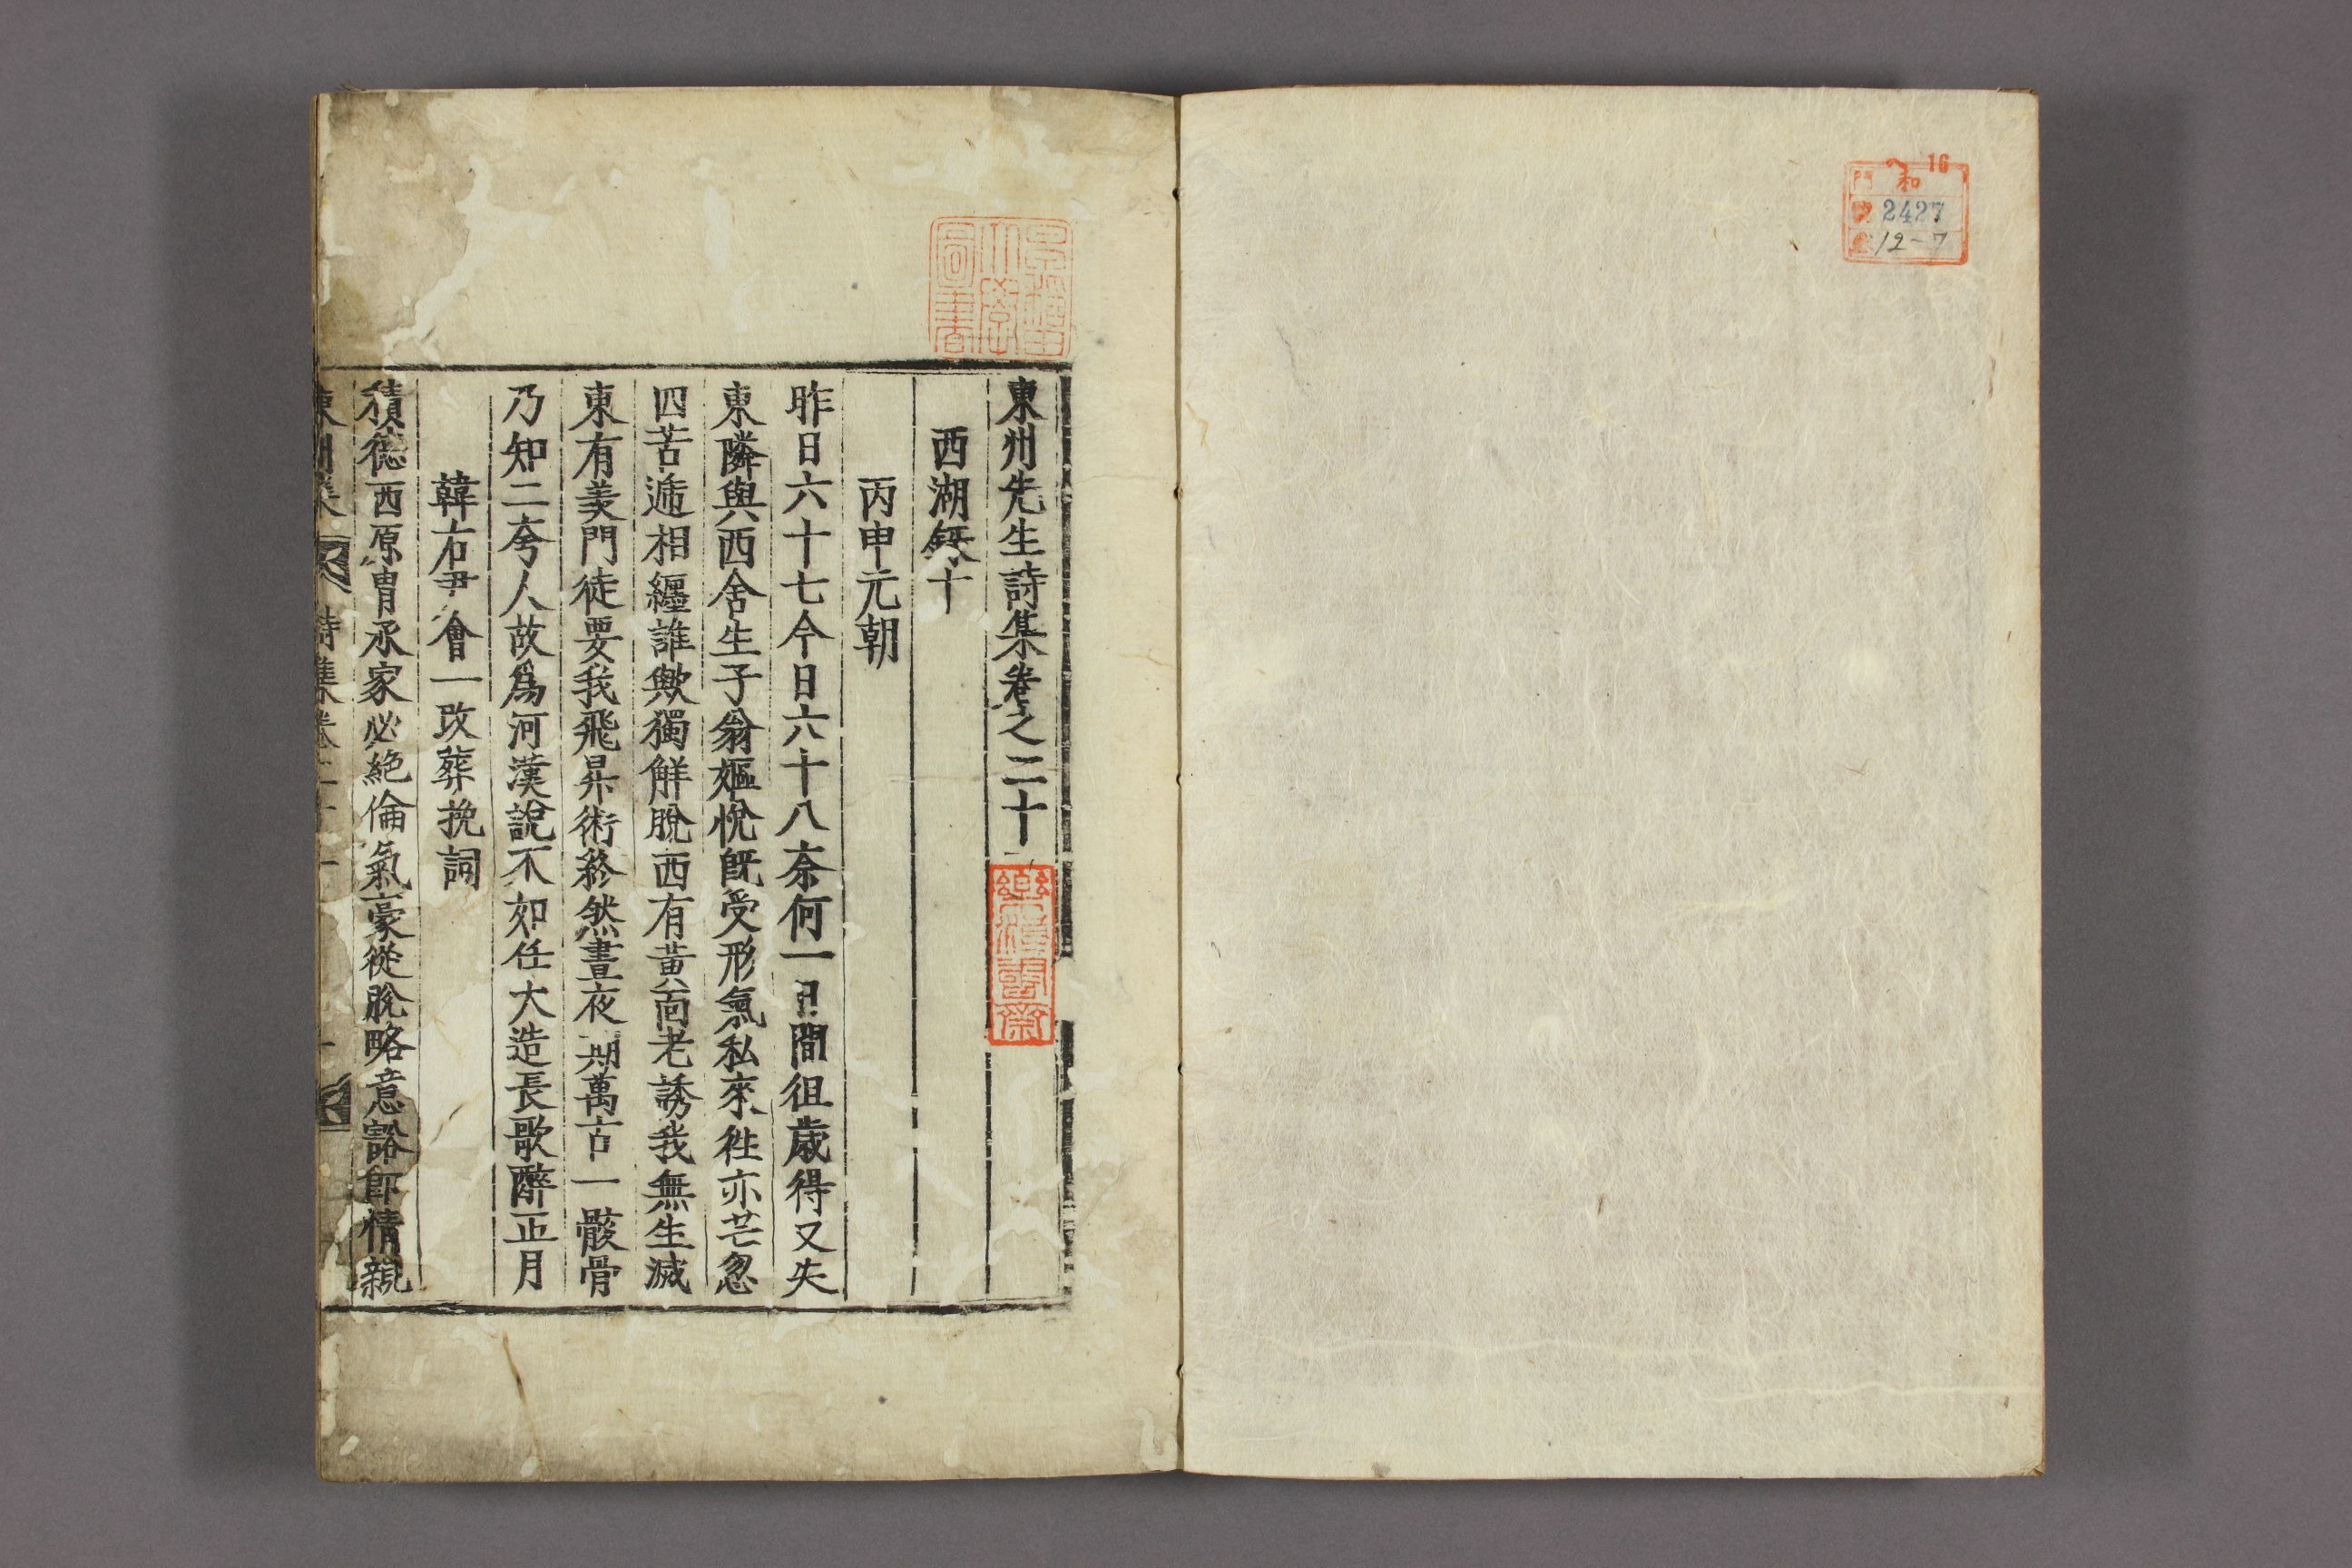 へ 16
門 和
號 2427
卷 12-7
早稲田大學圖書
東州先生詩集卷之二十
西湖錄十
丙申元朝
昨日六十七今日六十八奈何一日間徂歲得又失
東隣與西舍生子翁嫗悅旣受形氣私來徃亦芒忽
四苦遞相纏誰歟獨解脫西有黃面老誘我無生滅
東有羙門徒要我飛昇術終然晝夜期萬古一骸骨
乃知二夸人故爲河漢說不如任大造長歌醉正月
韓右尹會一改葬挽詞
積德西原冑承家必絶倫氣豪從脫略意豁卽情親